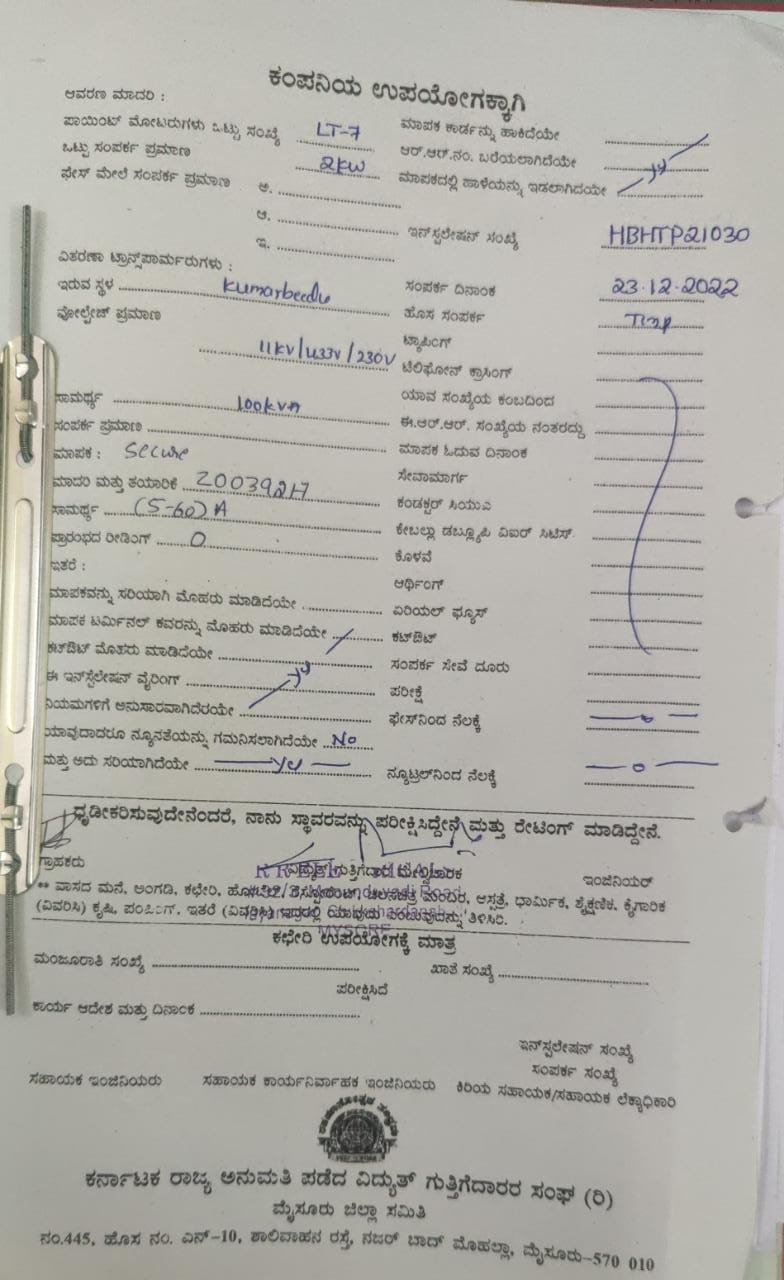 ಕಂಪನಿಯ ಉಪಯೋಗಕ್ಕಾಗಿ
ಆವರಣ ಮಾದರಿ :
ಪಾಯಿಂಟ್ ಮೋಟರುಗಳು ಒಟ್ಟು ಸಂಖ್ಯೆ LT-7 ಮಾಪಕ ಕಾರ್ಡನ್ನು ಹಾಕಿದೆಯೇ
ಒಟ್ಟು ಸಂಪರ್ಕ ಪ್ರಮಾಣ 2KW ಆರ್.ಆರ್.ನಂ. ಬರೆಯಲಾಗಿದೆಯೇ
ಫೇಸ್ ಮೇಲೆ ಸಂಪರ್ಕ ಪ್ರಮಾಣ ಅ. ಮಾಪಕದಲ್ಲಿ ಹಾಳೆಯನ್ನು ಇಡಲಾಗಿದೆಯೇ
ಆ. ಇನ್‌ಸ್ಟಲೇಷನ್ ಸಂಖ್ಯೆ HBHTP21030
ಇ.
ವಿತರಣಾ ಟ್ರಾನ್ಸ್‌ಪಾರ್ಮರುಗಳು :
ಇರುವ ಸ್ಥಳ Kumarbeedu ಸಂಪರ್ಕ ದಿನಾಂಕ 23.12.2022
ವೋಲ್ಟೇಜ್ ಪ್ರಮಾಣ ಹೊಸ ಸಂಪರ್ಕ
ಟ್ಯಾಪಿಂಗ್
11KV/433V/230V ಟೆಲಿಫೋನ್ ಕ್ರಾಸಿಂಗ್
ಸಾಮರ್ಥ್ಯ 100KVA ಯಾವ ಸಂಖ್ಯೆಯ ಕಂಬದಿಂದ
ಸಂಪರ್ಕ ಪ್ರಮಾಣ ಈ.ಆರ್.ಆರ್. ಸಂಖ್ಯೆಯ ನಂತರದ್ದು
ಮಾಪಕ : Secure ಮಾಪಕ ಓದುವ ದಿನಾಂಕ
ಮಾದರಿ ಮತ್ತು ತಯಾರಿಕೆ ಸೇವಾಮಾರ್ಗ
ಸಾಮರ್ಥ್ಯ (5-60)A ಕಂಡಕ್ಟರ್ ಸಿಯುಎ
ಪ್ರಾರಂಭದ ರೀಡಿಂಗ್ 0 ಕೇಬಲ್ಲು ಡಬ್ಲ್ಯೂಪಿ ವಿಐರ್ ಸಿಟಿಸ್.
ಇತರೆ : ಕೊಳವೆ
ಆರ್ಥಿಂಗ್
ಮಾಪಕವನ್ನು ಸರಿಯಾಗಿ ಮೊಹರು ಮಾಡಿದೆಯೇ ಏರಿಯಲ್ ಫ್ಯೂಸ್
ಮಾಪಕ ಟರ್ಮಿನಲ್ ಕವರನ್ನು ಮೊಹರು ಮಾಡಿದೆಯೇ ಕಟ್‌ಔಟ್
ಕಟ್‌ಔಟ್ ಮೊಹರು ಮಾಡಿದೆಯೇ ಸಂಪರ್ಕ ಸೇವೆ ದೂರು
ಈ ಇನ್‌ಸ್ಟಲೇಷನ್ ವೈರಿಂಗ್ ಪರೀಕ್ಷೆ
ನಿಯಮಗಳಿಗೆ ಅನುಸಾರವಾಗಿದೆರಯೇ ಫೇಸ್‌ನಿಂದ ನೆಲಕ್ಕೆ — 0 —
ಯಾವುದಾದರೂ ನ್ಯೂನತೆಯನ್ನು ಗಮನಿಸಲಾಗಿದೆಯೇ No
ಮತ್ತು ಅದು ಸರಿಯಾಗಿದೆಯೇ ನ್ಯೂಟ್ರಲ್‌ನಿಂದ ನೆಲಕ್ಕೆ — 0 —
ಧೃಡೀಕರಿಸುವುದೇನೆಂದರೆ, ನಾನು ಸ್ಥಾವರವನ್ನು ಪರೀಕ್ಷಿಸಿದ್ದೇನೆ ಮತ್ತು ರೇಟಿಂಗ್ ಮಾಡಿದ್ದೇನೆ.
ಗ್ರಾಹಕರು ವಿದ್ಯುತ್ ಗುತ್ತಿಗೆದಾರ ಮೇಲ್ವಿಚಾರಕ ಇಂಜಿನಿಯರ್
** ವಾಸದ ಮನೆ, ಅಂಗಡಿ, ಕಛೇರಿ, ಮಂದಿರ, ಆಸ್ಪತ್ರೆ, ಧಾರ್ಮಿಕ, ಶೈಕ್ಷಣಿಕ, ಕೈಗಾರಿಕ
(ವಿವರಿಸಿ) ಕೃಷಿ, ಪಂಪಿಂಗ್. ಇತರೆ (ವಿವರಿಸಿ) ಇದ್ದರಲ್ಲಿ ಯಾವುದು ತಿಳಿಸಿರಿ.
MYSORE
ಕಛೇರಿ ಉಪಯೋಗಕ್ಕೆ ಮಾತ್ರ
ಮಂಜೂರಾತಿ ಸಂಖ್ಯೆ ಖಾತೆ ಸಂಖ್ಯೆ
ಪರೀಕ್ಷಿಸಿದೆ
ಕಾರ್ಯ ಆದೇಶ ಮತ್ತು ದಿನಾಂಕ
ಇನ್‌ಸ್ಟಲೇಷನ್ ಸಂಖ್ಯೆ
ಸಂಪರ್ಕ ಸಂಖ್ಯೆ
ಸಹಾಯಕ ಇಂಜಿನಿಯರು ಸಹಾಯಕ ಕಾರ್ಯನಿರ್ವಾಹಕ ಇಂಜಿನಿಯರು ಕಿರಿಯ ಸಹಾಯಕ/ಸಹಾಯಕ ಲೆಕ್ಕಾಧಿಕಾರಿ
ಕರ್ನಾಟಕ ರಾಜ್ಯ ಅನುಮತಿ ಪಡೆದ ವಿದ್ಯುತ್ ಗುತ್ತಿಗೆದಾರರ ಸಂಘ (ರಿ)
ಮೈಸೂರು ಜಿಲ್ಲಾ ಸಮಿತಿ
ನಂ.445, ಹೊಸ ನಂ. ಎನ್-10, ಶಾಲಿವಾಹನ ರಸ್ತೆ, ನಜರ್ ಬಾದ್ ಮೊಹಲ್ಲಾ, ಮೈಸೂರು-570 010